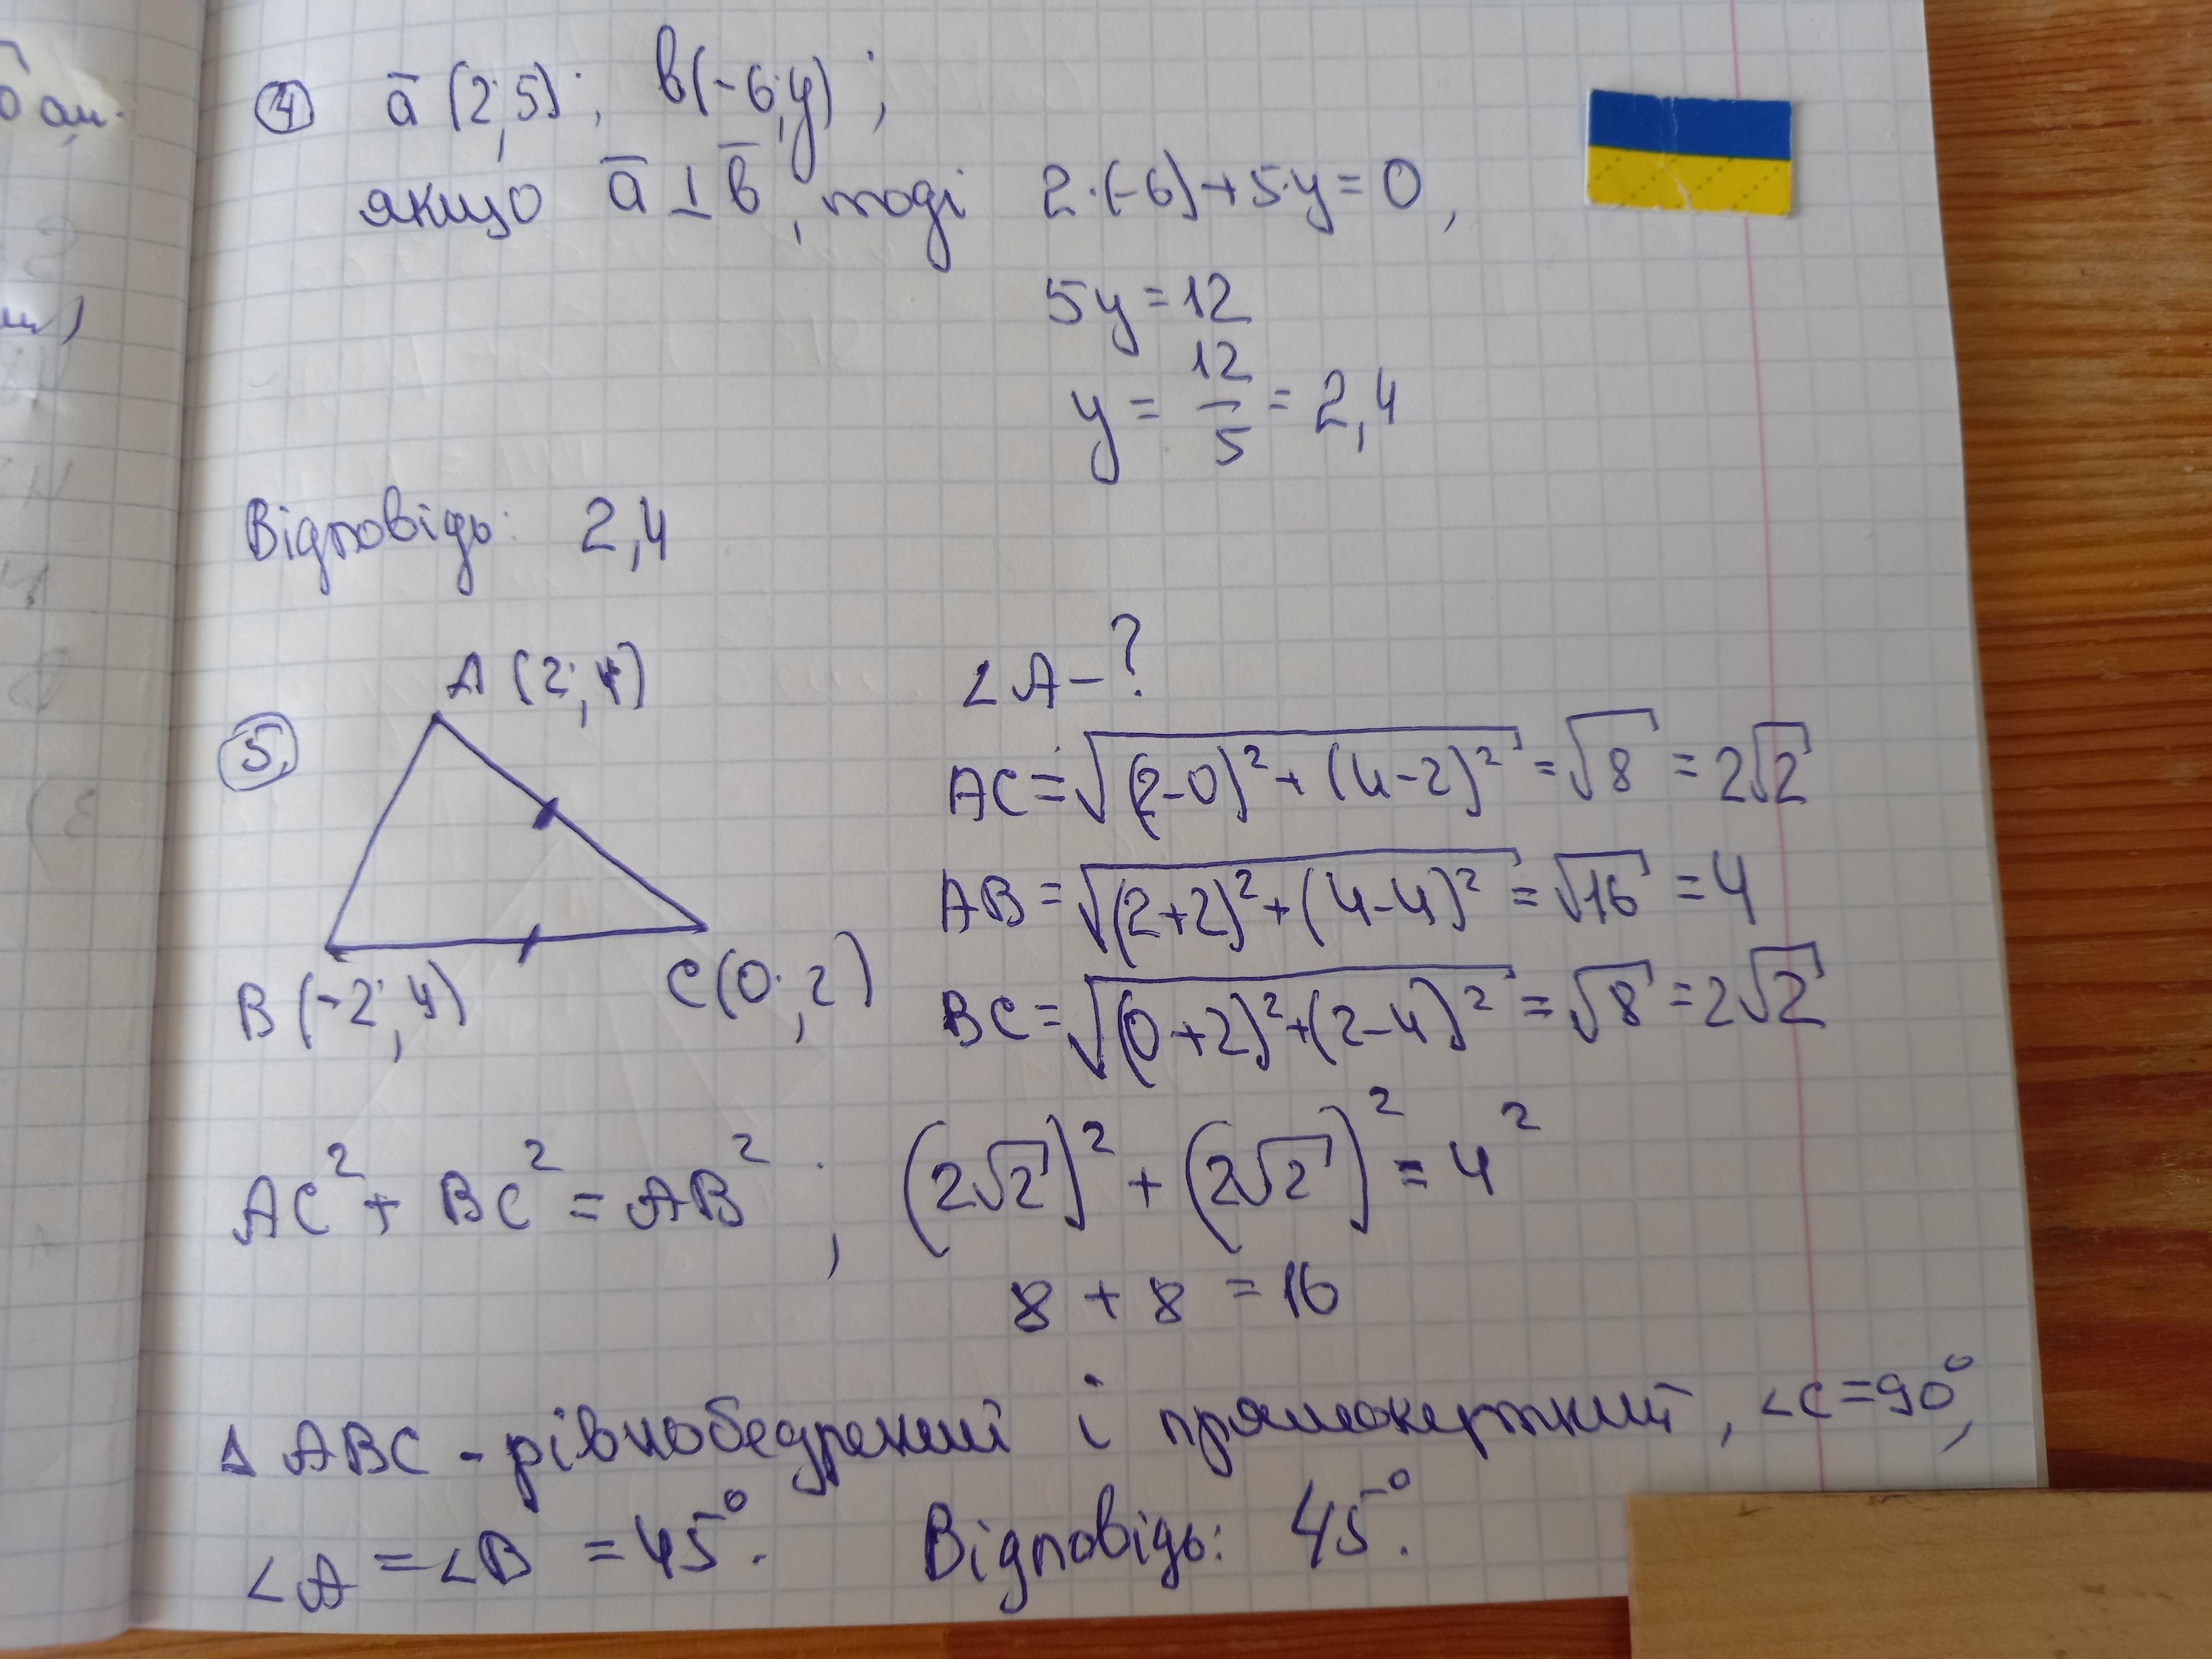 ④ a̅ (2;5); b(-6;y);
якщо a̅ ⊥ b̅, тоді 2·(-6)+5·y=0,
5y=12
y = 12/5 = 2,4
Відповідь: 2,4
⑤ A (2;4)
B (-2;4)
C(0;2)
∠A-?
AC=√((2-0)²+(4-2)²)=√8=2√2
AB=√((2+2)²+(4-4)²)=√16=4
BC=√((0+2)²+(2-4)²)=√8=2√2
AC²+BC²=AB²; (2√2)²+(2√2)²=4²
8+8=16
Δ ABC - рівнобедрений і прямокутний, ∠C=90°,
∠A=∠B=45°. Відповідь: 45°.